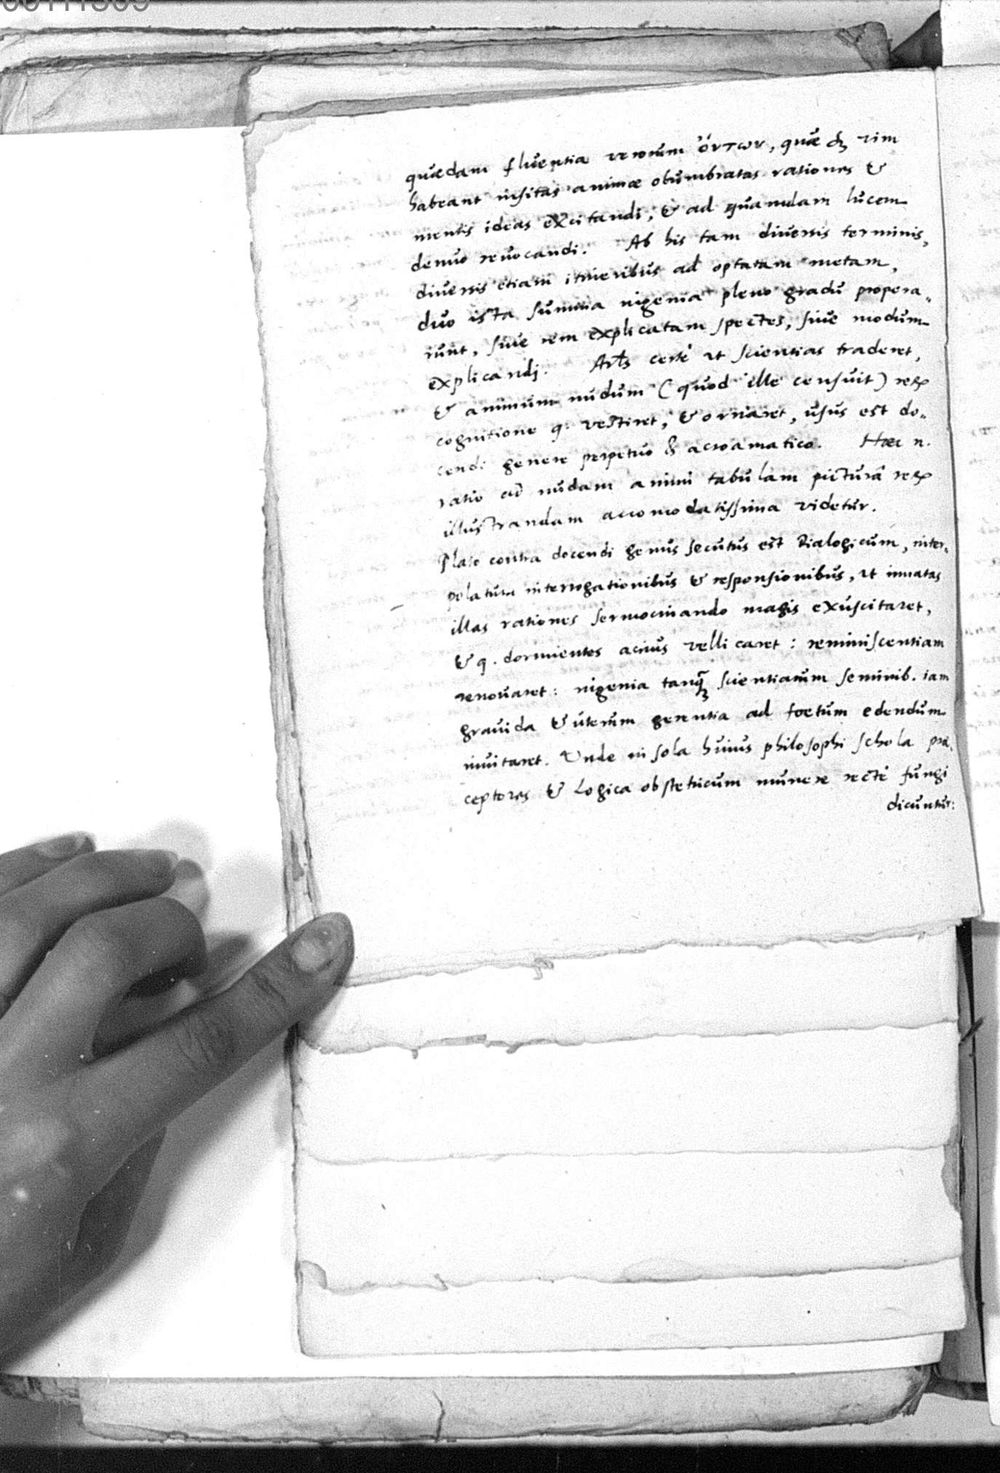 quædam fluentia rerum ὄντων, quæ vim
habeant insitas animæ obumbratas rationes &
mentis ideas excitandi, & ad quandam lucem
denuo revocandi. Ab his tam diversis terminis,
diversis etiam itineribus ad optatam metam,
duo ista summa ingenia pleno gradu propera-
runt, sive rem explicatam spectes, sive modum
explicandi. certè ut scientias traderet,
& animum nudum (quod ille censuit) rerum
cognitione q. vestiret, & ornaret, usus est do-
cendi genere perpetuo & acroamatico. Hæc n.
ratio ad nudam animi tabulam picturâ rerum
illustrandam accomodatissima videtur.
Plato contra docendi genus secutus est Dialogicum, inter-
polatum interrogationibus & responsionibus, ut innatas
illas rationes sermocinando magis exuscitaret,
& q. dormientes acrius vellicaret: reminiscentiam
renovaret: ingenia tanq̃ scientiarum seminib. iam
gravida & uterum gerentia ad foetum edendum
invitaret. Unde in sola huius philosophi schola præ-
ceptores & Logica obstetricum munere rectè fungi
dicuntur: